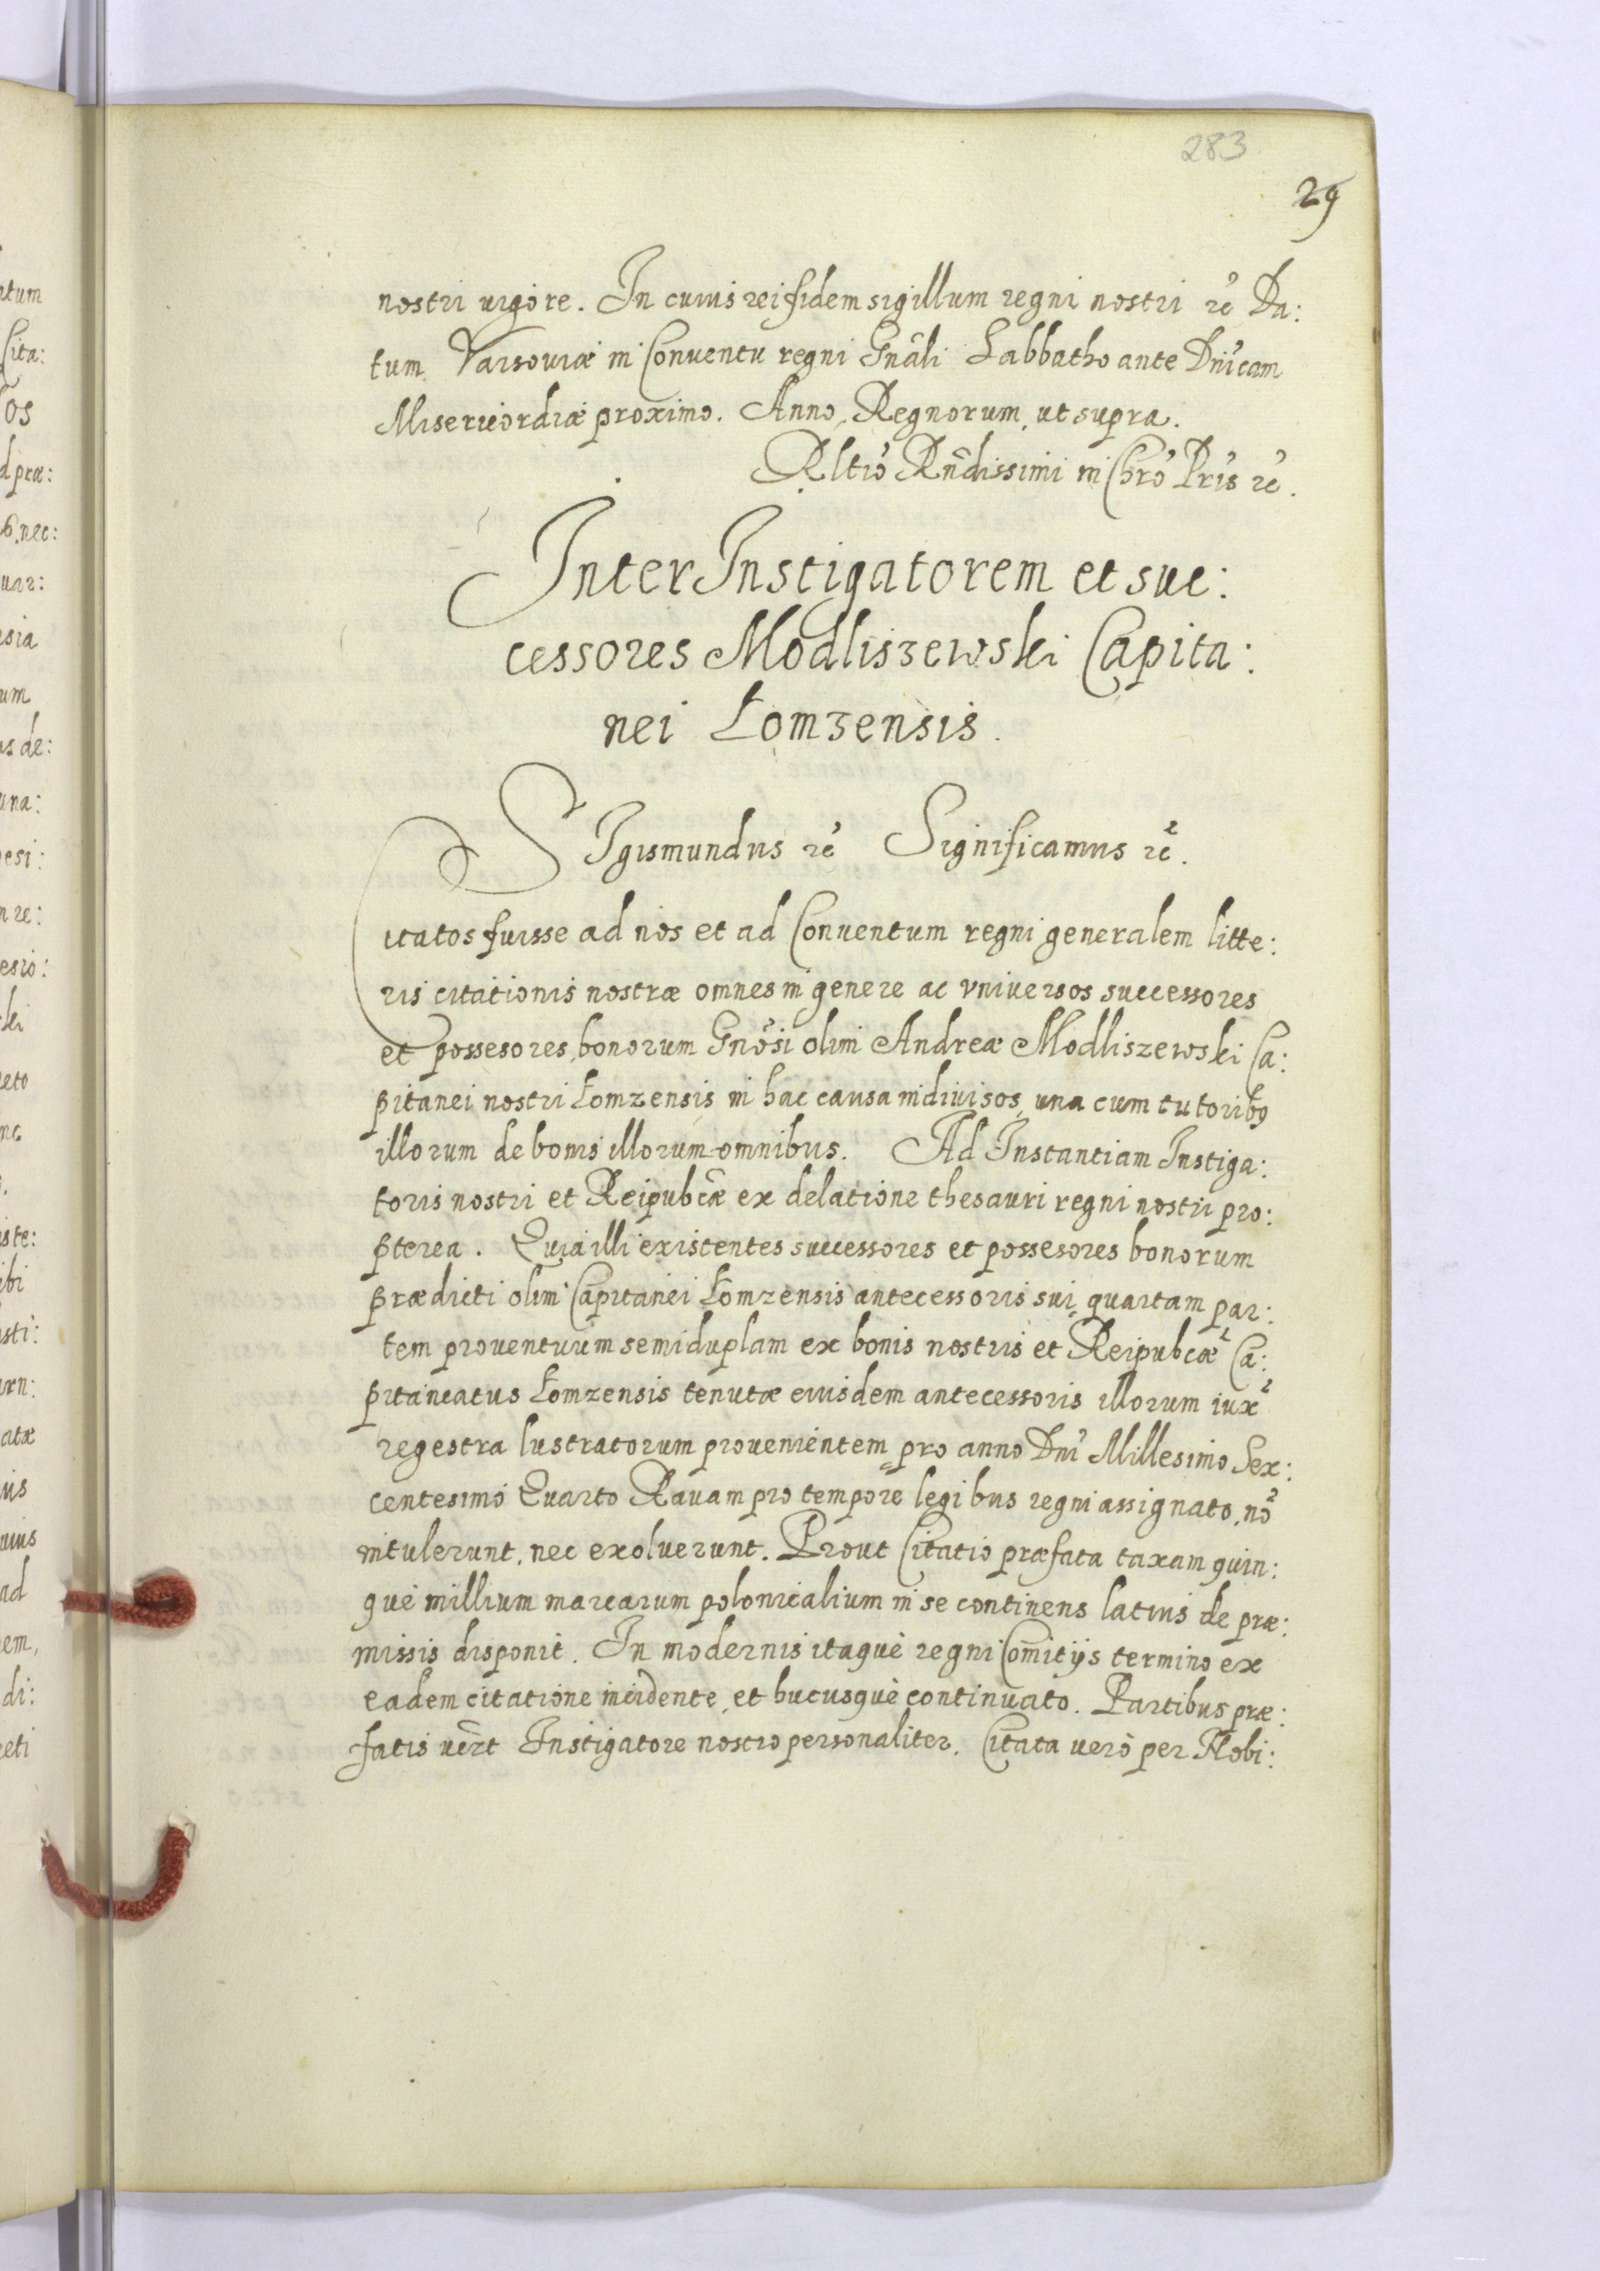 283
29
nostri vigore. In cuius rei fidem sigillum regni nostri rc̃ Da:
tum Varsoviæ in Conventu regni Gnãli Sabbatho ante Dnĩcam
Misericordiæ proximo. Anno, Regnorum, ut supra.
Rltiõ Rñdissimi in Chrõ Prĩs rc̃.
Inter Instigatorem et suc:
cessores Modliszewski Capita:
nei Łomzensis.
SIgismundus rc̃ Significamus rc̃.
Citatos fuisse ad nos et ad Conventum regni generalem litte:
ris citationis nostræ omnes in genere ac vniversos successores
et possesores, bonorum Gnõsi olim Andreæ Modliszewski Ca:
pitanei nostri Łomzensis in hac causa indivisos, una cum tutoribq
illorum de bonis illorum omnibus. Ad Instantiam Instiga:
toris nostri et Reipubcæ̃ ex delatione thesauri regni nostri pro:
pterea. Quia illi existentes successores et possesores bonorum
prædicti olim Capitanei Łomzensis antecessoris sui, quartam par:
tem proventuum semiduplam ex bonis nostris et Reipubcæ̃ Ca:
pitaneatus Łomzensis tenutæ eiusdem antecessoris illorum iuxᷓ
regestra lustratorum provenientem, pro anno Dnĩ Millesimo Sex:
centesimo Quarto Ravam pro tempore legibus regni assignato, nõ
intulerunt, nec exolverunt. Prout Citatio præfata taxam quin:
què millium marcarum polonicalium in se continens latius de præ:
missis disponit. In modernis itaquè regni Comitijs termino ex
eadem citatione incidente, et hucusquè continuato. Partibus præ:
fatis vẽrt Instigatore nostro personaliter. Citata verò per Nobi: